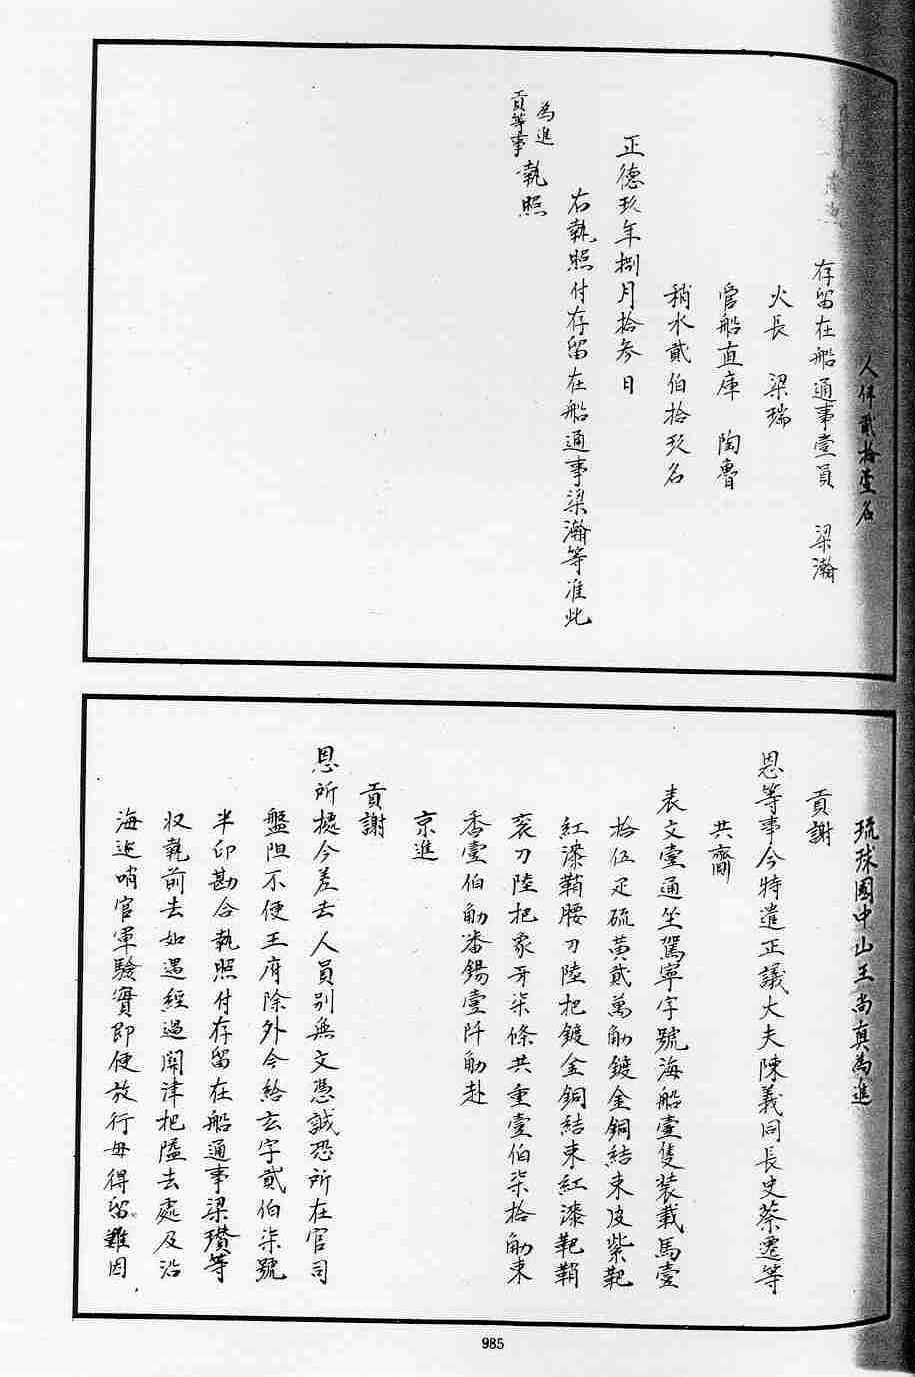 人伴貳拾壹名
存留在船通事壹員　梁瀚
火長　梁瑞
管船直庫　陶魯
稍水貳伯拾玖名
正德玖年捌月拾參日
右執照付存留在船通事梁瀚等准此
為進
貢等事　執照
琉球國中山王尚真為進
貢謝
恩等事今特遣正議大夫陳義同長史蔡遷等
共齎
表文壹通坐駕寧字號海船壹隻装載馬壹
拾伍疋硫黄貳萬觔鍍金銅結束皮紫靶
紅漆鞘腰刀陸把鍍金銅結束紅漆靶鞘
袞刀陸把象牙柒條共重壹伯柒拾觔束
香壹伯觔番錫壹阡觔赴
京進
貢謝
恩所據今差去人員别無文憑誠恐所在官司
盤阻不便王府除外今給玄字貳伯柒號
半印勘合執照付存留在船通事梁瓚等
収執前去如遇經過関津把隘去處及沿
海巡哨官軍驗實即便放行毋得留難因
985